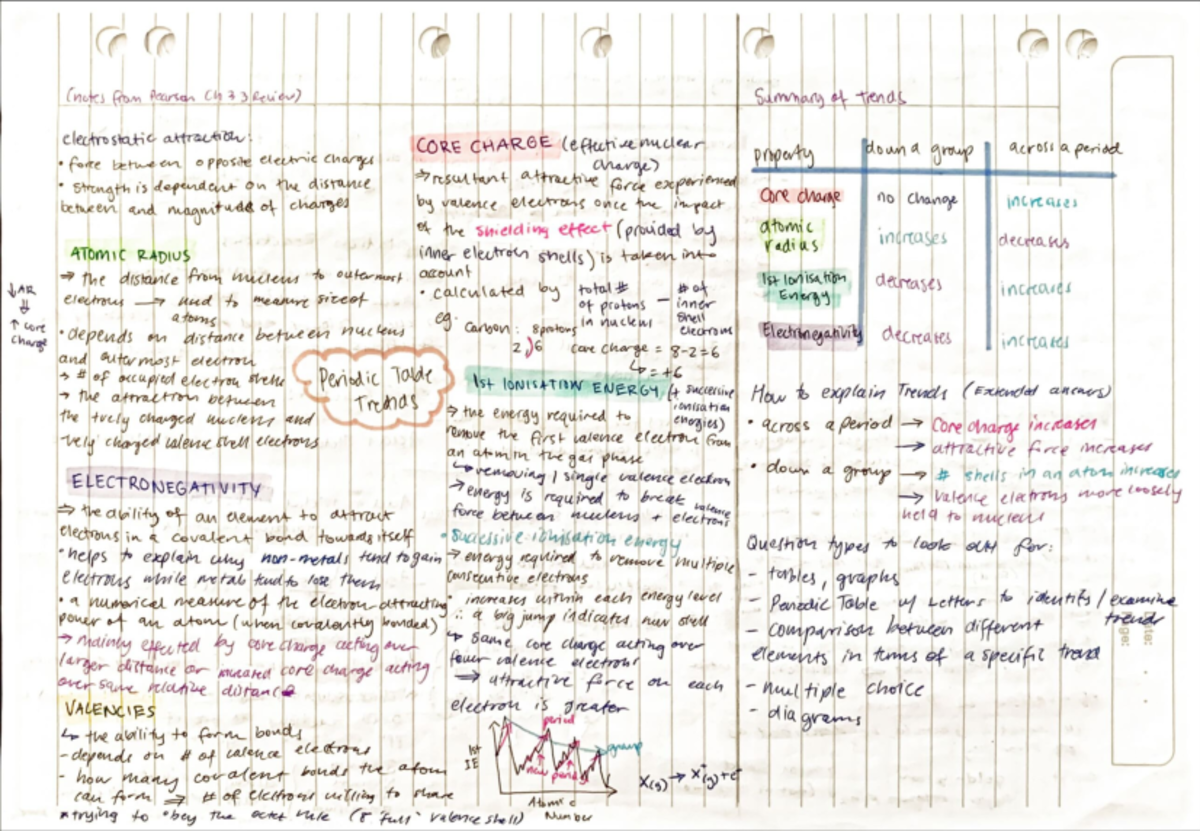 (notes from Pearson Ch 3.3 Review)
electrostatic attraction:
• force between opposite electric charges
• strength is dependent on the distance
between and magnitude of charges
ATOMIC RADIUS
⇒ the distance from nucleus to outermost
electrons → used to measure size of
atoms
• depends on distance between nucleus
and outermost electron
→ # of occupied electron shells
→ the attraction between
the +vely charged nucleus and
-vely charged valence shell electrons
↓AR
⇓
↑ core
charge
Periodic Table
Trends
ELECTRONEGATIVITY
⇒ the ability of an element to attract
electrons in a covalent bond towards itself
• helps to explain why non-metals tend to gain
electrons while metals tend to lose them
• a numerical measure of the electron attracting
power of an atom (when covalently bonded)
→ mainly effected by core charge acting over
larger distance or increased core charge acting
over same relative distance
VALENCIES
↳ the ability to form bonds
- depends on # of valence electrons
- how many covalent bonds the atom
can form ⇒ # of electrons willing to share
* trying to obey the octet rule (8 "full" valence shell)
CORE CHARGE (effective nuclear
charge)
⇒ resultant attractive force experienced
by valence electrons once the impact
of the shielding effect (provided by
inner electron shells) is taken into
account
• calculated by total # of protons in nucleus − # of inner shell electrons
eg. Carbon: 8 protons
2 ) 6 core charge = 8-2=6
↳ = +6
1st IONISATION ENERGY (+ successive
ionisation
energies)
⇒ the energy required to
remove the first valence electron from
an atom in the gas phase
↳ removing 1 single valence electron
→ energy is required to break valence
force between nucleus + electrons
• Successive ionisation energy
→ energy required to remove multiple
consecutive electrons
• increases within each energy level
∴ a big jump indicates new shell
↳ same core charge acting over
fewer valence electrons
⇒ attractive force on each
electron is greater
period
group
new period
1st
IE
Atomic
Number
X(g) → X⁺(g) + e⁻
Summary of Trends
property down a group across a period
Core charge no change increases
atomic
radius increases decreases
1st Ionisation
Energy decreases increases
Electronegativity decreases increases
How to explain Trends (Extended answers)
• across a period → Core charge increases
→ attractive force increases
• down a group → # shells in an atom increases
→ valence electrons more loosely
held to nucleus
Question types to look out for:
- tables, graphs
- Periodic Table w/ Letters to identify/examine
trends
- comparison between different
elements in terms of a specific trend
- multiple choice
- diagrams